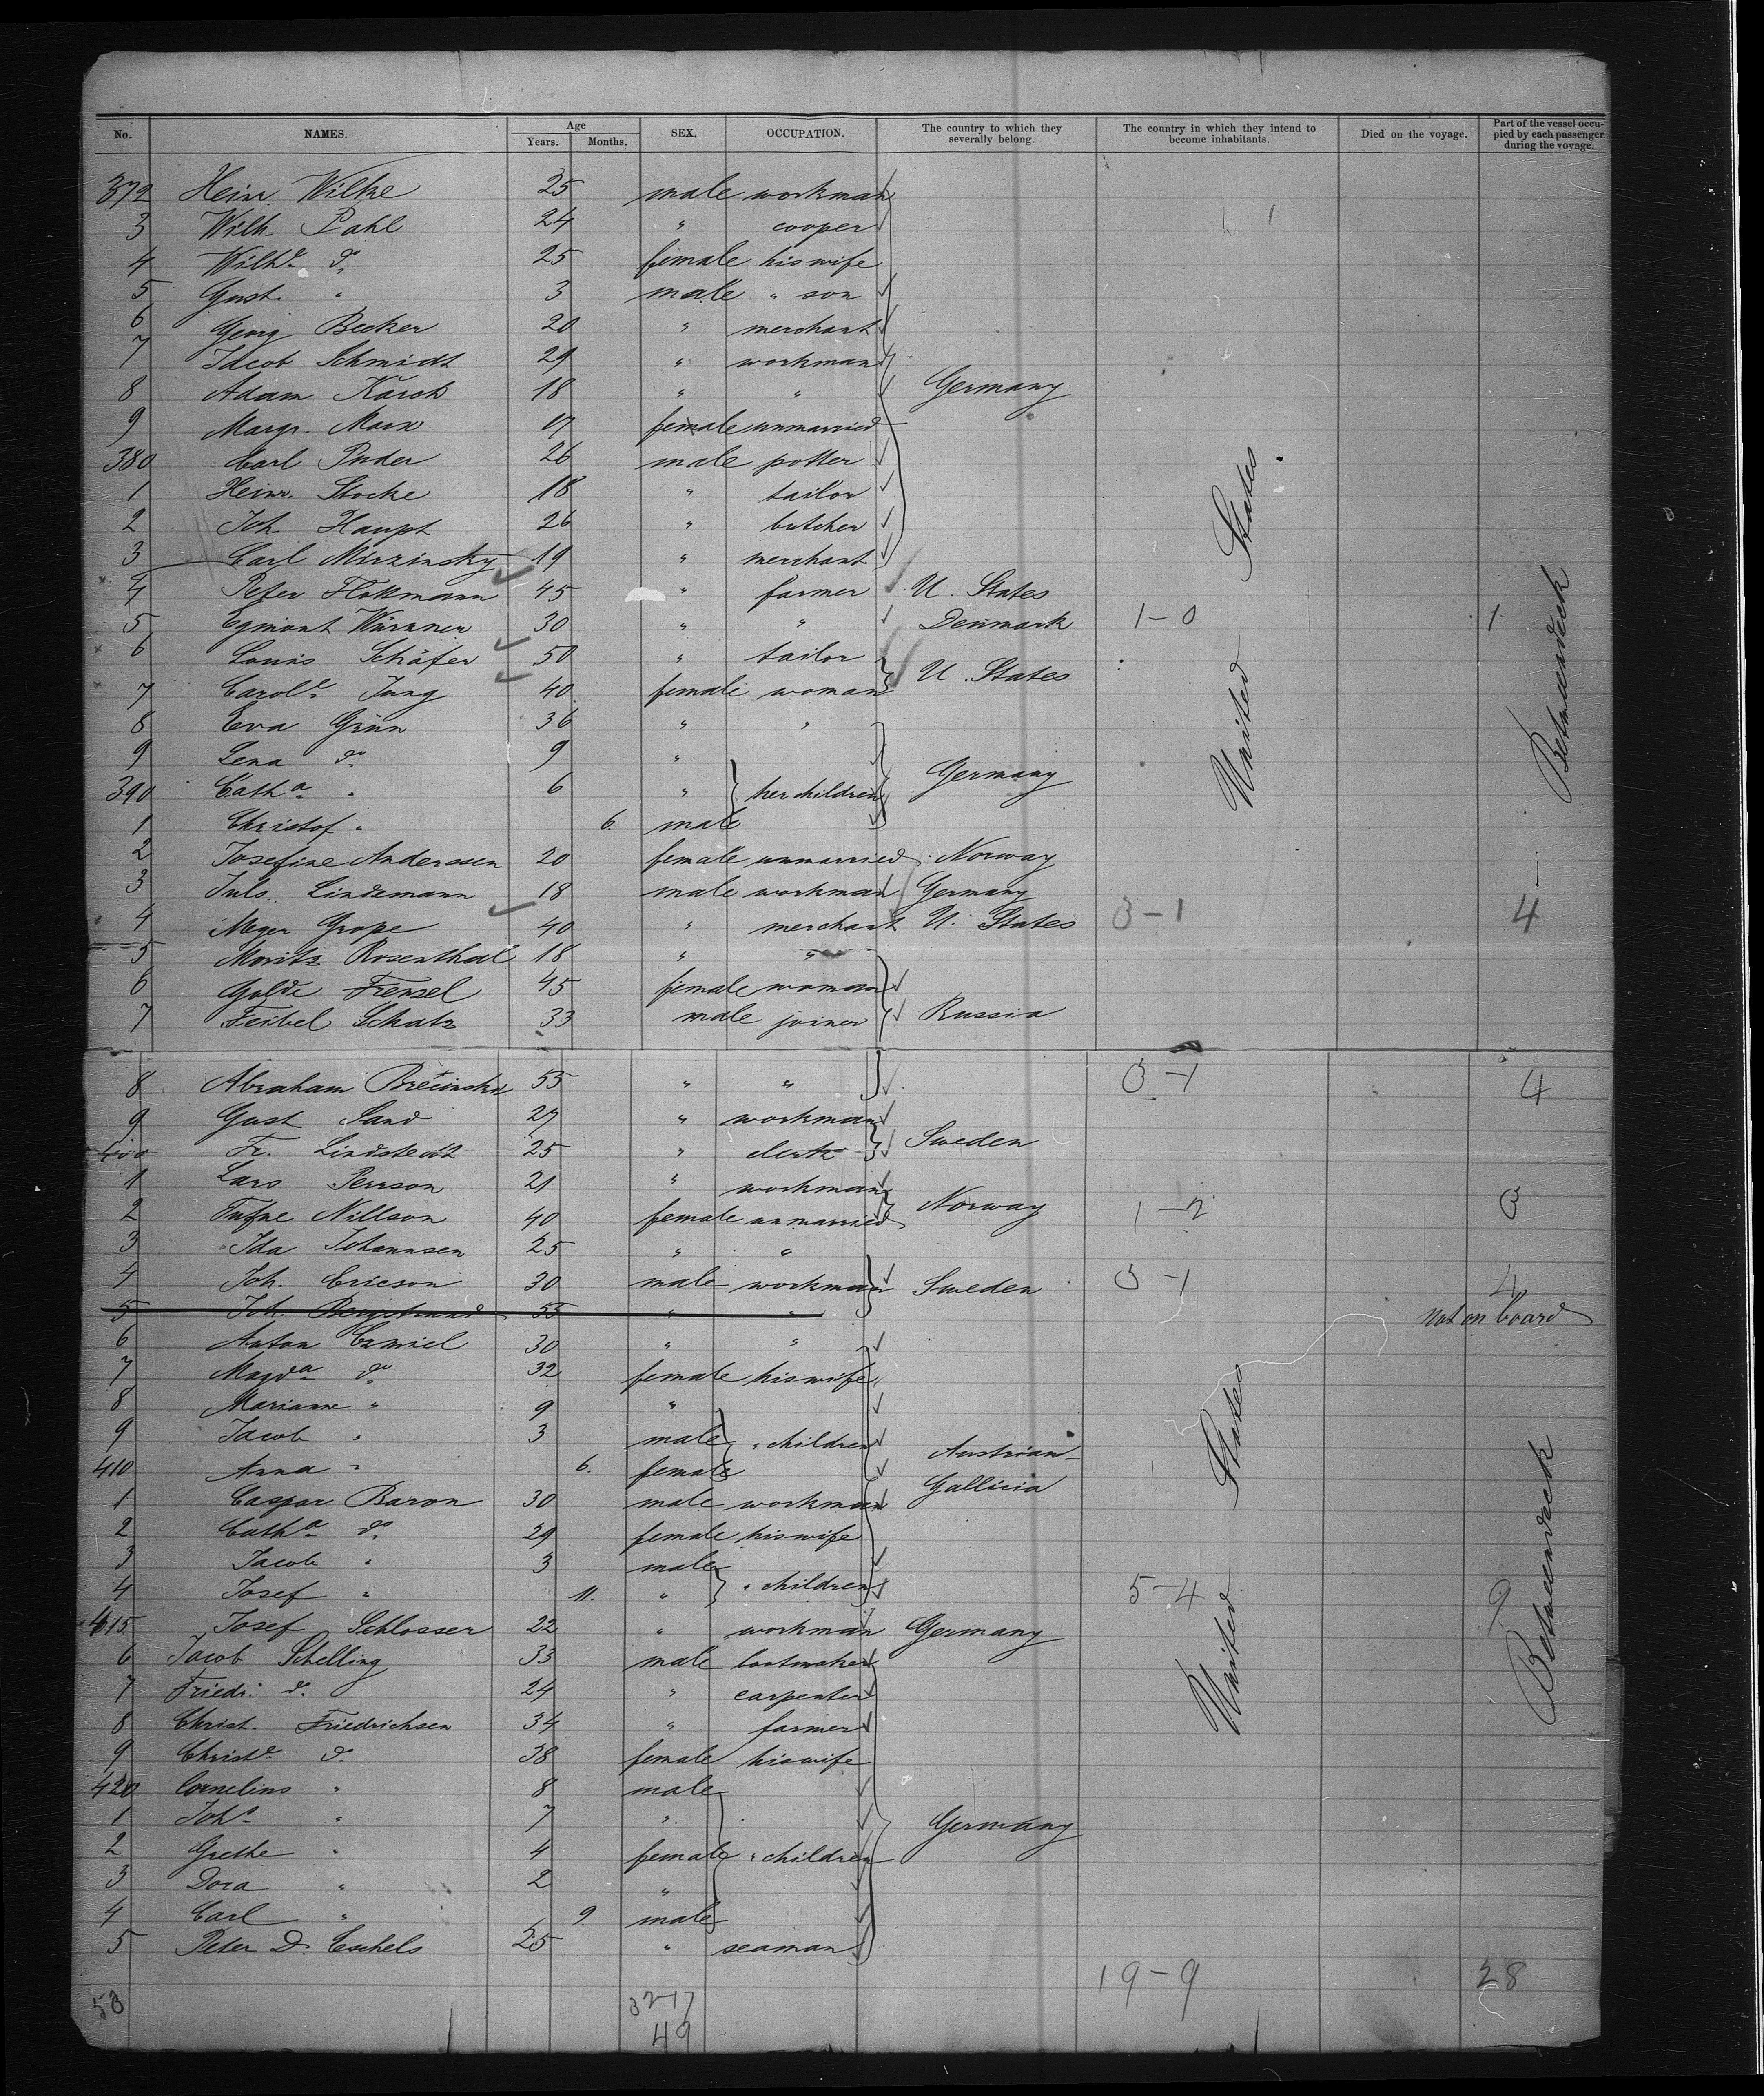 No. NAMES. Age Years. Months. SEX. OCCUPATION. The country to which they severally belong. The country in which they intend to become inhabitants. Died on the voyage. Part of the vessel occupied by each passenger during the voyage.
372 Heinr. Wilke 25 male workman
3 Wilh. Pahl 24 " cooper
4 Wilhe. do 25 female his wife
5 Gust. " 3 male " son
6 Georg Becker 20 " merchant
7 Jacob Schmidt 29 " workman
8 Adam Karch 18 " " Germany
9 Margr. Marx 17 female unmarried
380 Carl Puder 26 male potter
1 Heinr. Stocke 18 " tailor
2 Joh. Haupt 26 " butcher
3 Carl Mirzinsky 19 " merchant
4 Peter Flottmann 45 " farmer U. States
5 Egmont Würzner 30 " " Denmark 1-0 1
6 Louis Schäfer 50 " tailor
7 Carole. Jung 40 female woman U. States
8 Eva Grün 36 " "
9 Lena do 9 "
390 Catha " 6 " her children Germany
1 Christof " 6. male
2 Josefine Anderssen 20 female unmarried Norway
3 Juls. Lindemann 18 male workman Germany
4 Meyer Grope 40 " merchant U. States 3-1 4
5 Moritz Rosenthal 18 " "
6 Golde Frensel 45 female woman
7 Feibel Schatz 33 male joiner Russia
United States. Betweendeck
8 Abraham 55 " " 3-1 4
9 Gust Sand 27 " workman
400 Fr. Lindstedt 25 " clerk Sweden
1 Lars Persson 21 " workman
2 Nillson 40 female unmarried Norway 1-2 3
3 Ida Johannsen 25 " "
4 Joh. Ericson 30 male workman Sweden 3-1 4
5 Joh. Bergstrand 55 " " not on board
6 Anton 30 " "
7 Magda do 32 female his wife
8 Marianne " 9 "
9 Jacob " 3 male " children Austrian-
410 Anna " 6. female Gallicia
1 Caspar Baron 30 male workman
2 Catha do 29 female his wife
3 Jacob " 3 male
4 Josef " 11. " " children 5-4 9
415 Josef Schlosser 22 " workman Germany
6 Jacob Schelling 33 male bootmaker
7 Friedr. do 24 " carpenter
8 Christ. Friedrichsen 34 " farmer
9 Christe. do 38 female his wife
420 Cornelius " 8 male
1 Johs " 7 " Germany
2 Grethe " 4 female " children
3 Dora " 2 "
4 Carl " 9. male
5 Peter D. Eschels 25 " seaman
United States Betweendeck
19-9 28
53 32-17
49